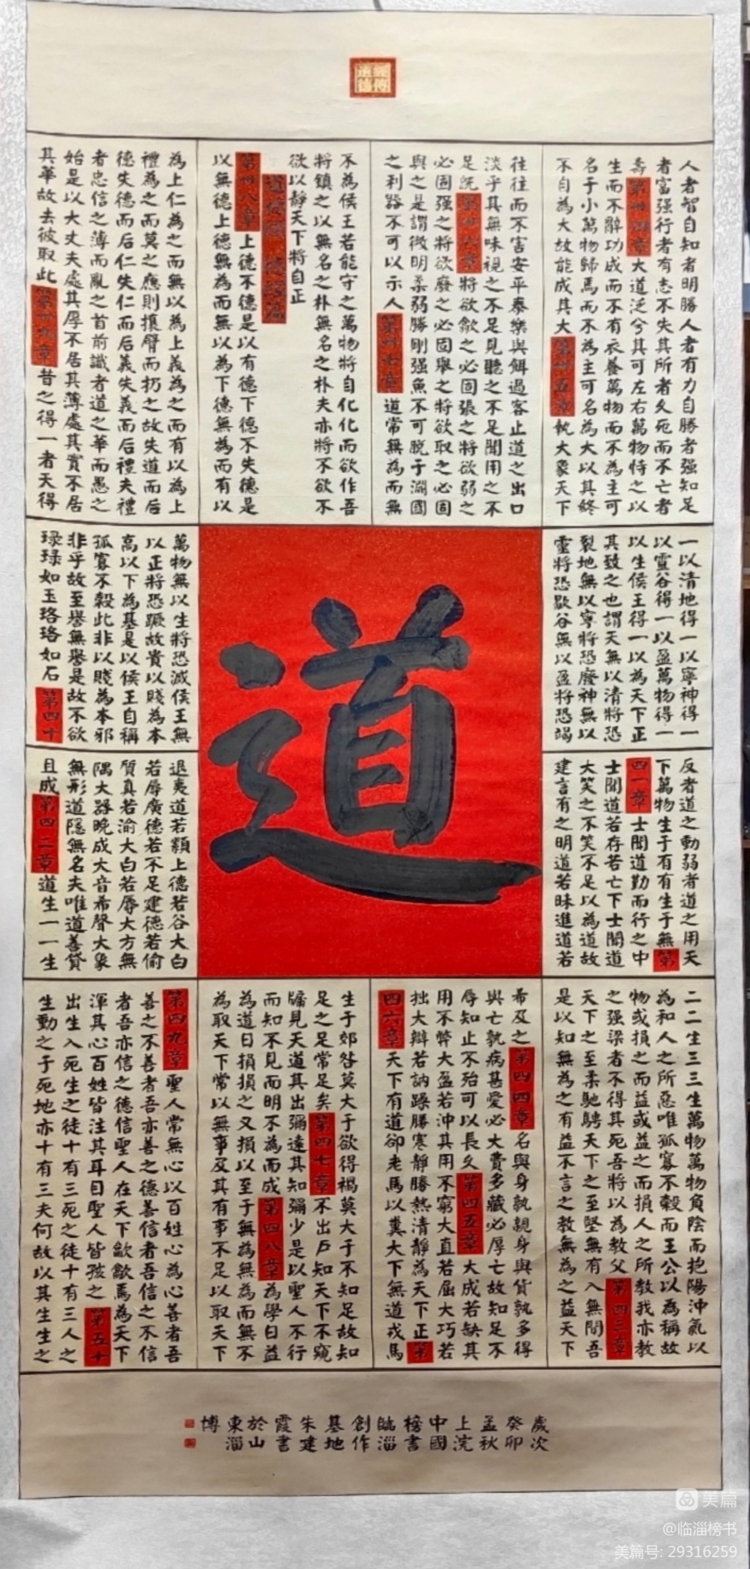 人者智自知者明勝人者有力自勝者强知足
者富强行者有志不失其所者久死而不亡者
壽第卅四章大道泛兮其可左右萬物恃之以
生而不辭功成而不有衣養萬物而不為主可
名于小萬物歸焉而不為主可名為大以其終
不自為大故能成其大第卅五章執大象天下
往往而不害安平泰樂與餌過客止道之出口
淡乎其無味視之不足見聽之不足聞用之不
足既第卅六章將欲歙之必固張之將欲弱之
必固强之將欲廢之必固舉之將欲取之必固
與之是謂微明柔弱勝剛强魚不可脫于淵國
之利器不可以示人第卅七章道常無為而無
不為侯王若能守之萬物將自化化而欲作吾
將鎮之以無名之朴無名之朴夫亦將不欲不
欲以靜天下將自正
第卅八章上德不德是以有德下德不失德是
以無德上德無為而無以為下德無為而有以
為上仁為之而無以為上義為之而有以為上
禮為之而莫之應則攘臂而扔之故失道而后
德失德而后仁失仁而后義失義而后禮夫禮
者忠信之薄而亂之首前識者道之華而愚之
始是以大丈夫處其厚不居其薄處其實不居
其華故去彼取此第卅九章昔之得一者天得
一以清地得一以寧神得一
以靈谷得一以盈萬物得一
以生侯王得一以為天下正
其致之也謂天無以清將恐
裂地無以寧將恐廢神無以
靈將恐歇谷無以盈將恐竭
萬物無以生將恐滅侯王無
以正將恐蹶故貴以賤為本
高以下為基是以侯王自稱
孤寡不穀此非以賤為本邪
非乎故至譽無譽是故不欲
琭琭如玉珞珞如石第四十
道
反者道之動弱者道之用天
下萬物生于有有生于無第
四一章士聞道勤而行之中
士聞道若存若亡下士聞道
大笑之不笑不足以為道故
建言有之明道若昧進道若
退夷道若纇上德若谷大白
若辱廣德若不足建德若偷
質真若渝大白若辱大方無
隅大器晚成大音希聲大象
無形道隱無名夫唯道善貸
且成第四二章道生一一生
二二生三三生萬物萬物負陰而抱陽沖氣以
為和人之所惡唯孤寡不穀而王公以為稱故
物或損之而益或益之而損人之所教我亦教
之强梁者不得其死吾將以為教父第四三章
天下之至柔馳騁天下之至堅無有入無間吾
是以知無為之有益不言之教無為之益天下
希及之第四四章名與身孰親身與貨孰多得
與亡孰病甚愛必大費多藏必厚亡故知足不
辱知止不殆可以長久第四五章大成若缺其
用不弊大盈若沖其用不窮大直若屈大巧若
拙大辯若訥躁勝寒靜勝熱清靜為天下正第
四六章天下有道卻走馬以糞天下無道戎馬
生于郊咎莫大于欲得禍莫大于不知足故知
足之足常足矣第四七章不出户知天下不窺
牖見天道其出彌遠其知彌少是以聖人不行
而知不見而明不為而成第四八章為學日益
為道日損損之又損以至于無為無為而無不
為取天下常以無事及其有事不足以取天下
第四九章聖人常無心以百姓心為心善者吾
善之不善者吾亦善之德善信者吾信之不信
者吾亦信之德信聖人在天下歙歙焉為天下
渾其心百姓皆注其耳目聖人皆孩之第五十
出生入死生之徒十有三死之徒十有三人之
生動之于死地亦十有三夫何故以其生生之
歲次
癸卯
孟秋
上浣
中國
榜書
臨淄
創作
基地
朱建
霞書
於山
東淄
博
美篇
@临淄榜书
美篇号: 29316259